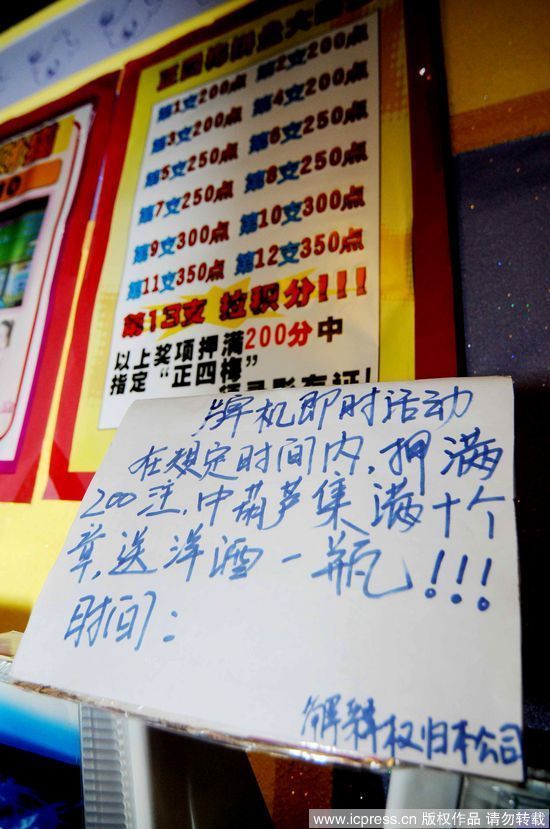 第1支200点 第2支200点
第3支200点 第4支200点
第5支250点 第6支250点
第7支250点 第8支250点
第9支300点 第10支300点
第11支350点 第12支350点
第13支 拉积分!!!
以上奖项押满200分中
指定“正四梅”
牌机即时活动
在规定时间内,押满
200注,中葫芦集满十个
章,送洋酒一瓶!!!
时间:
解释权归本公司
www.icpress.cn 版权作品 请勿转载